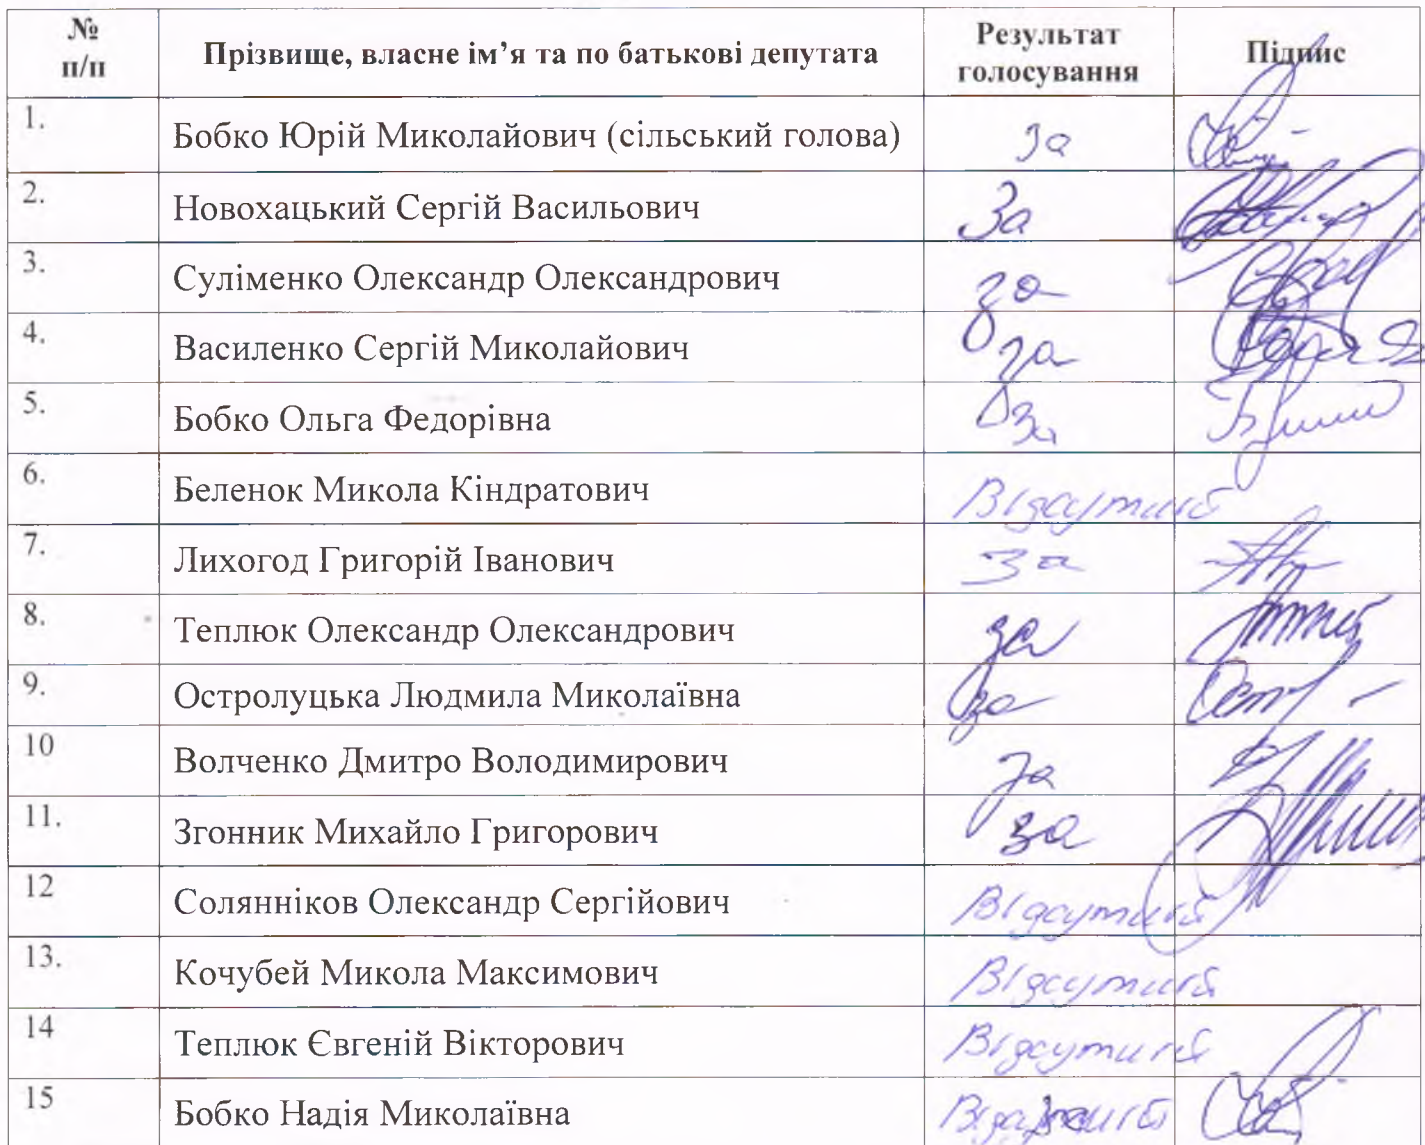 № п/п Прізвище, власне ім’я та по батькові депутата Результат голосування Підпис
1. Бобко Юрій Миколайович (сільський голова) За
2. Новохацький Сергій Васильович За
3. Суліменко Олександр Олександрович за
4. Василенко Сергій Миколайович за
5. Бобко Ольга Федорівна за
6. Беленок Микола Кіндратович Відсутній
7. Лихогод Григорій Іванович За
8. Теплюк Олександр Олександрович за
9. Остролуцька Людмила Миколаївна за
10 Волченко Дмитро Володимирович За
11. Згонник Михайло Григорович за
12 Солянніков Олександр Сергійович Відсутній
13. Кочубей Микола Максимович Відсутній
14 Теплюк Євгеній Вікторович Відсутній
15 Бобко Надія Миколаївна за